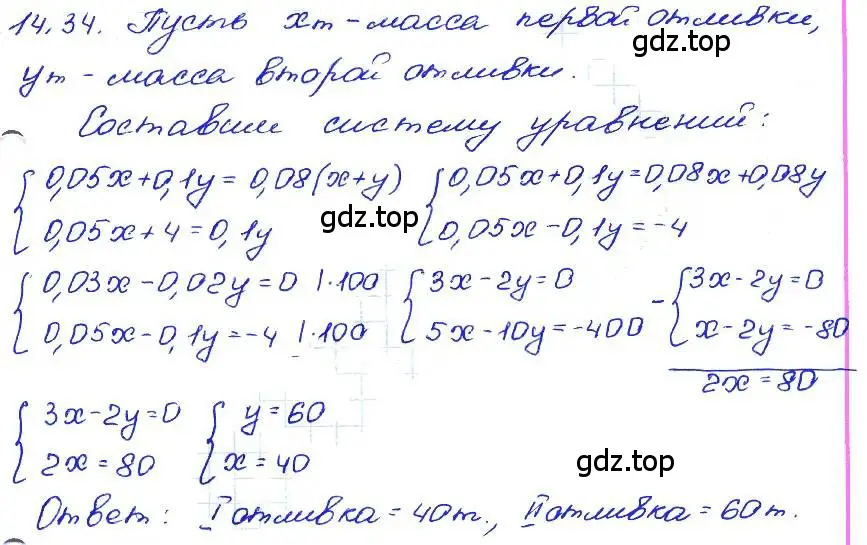 14.34. Пусть xт – масса первой отливки,
gdz.top
yт – масса второй отливки.
Составим систему уравнений:
{ 0,05x+0,1y = 0,08(x+y) { 0,05x+0,1y=0,08x+0,08y
0,05x+4=0,1y 0,05x-0,1y=-4
gdz.top
{ 0,03x-0,02y=0 |·100 { 3x-2y=0 - { 3x-2y=0
0,05x-0,1y=-4 |·100 5x-10y=-400 x-2y=-80
2x=80
{ 3x-2y=0 { y=60
2x=80 x=40
gdz.top
Ответ: I отливка = 40т., II отливка = 60т.